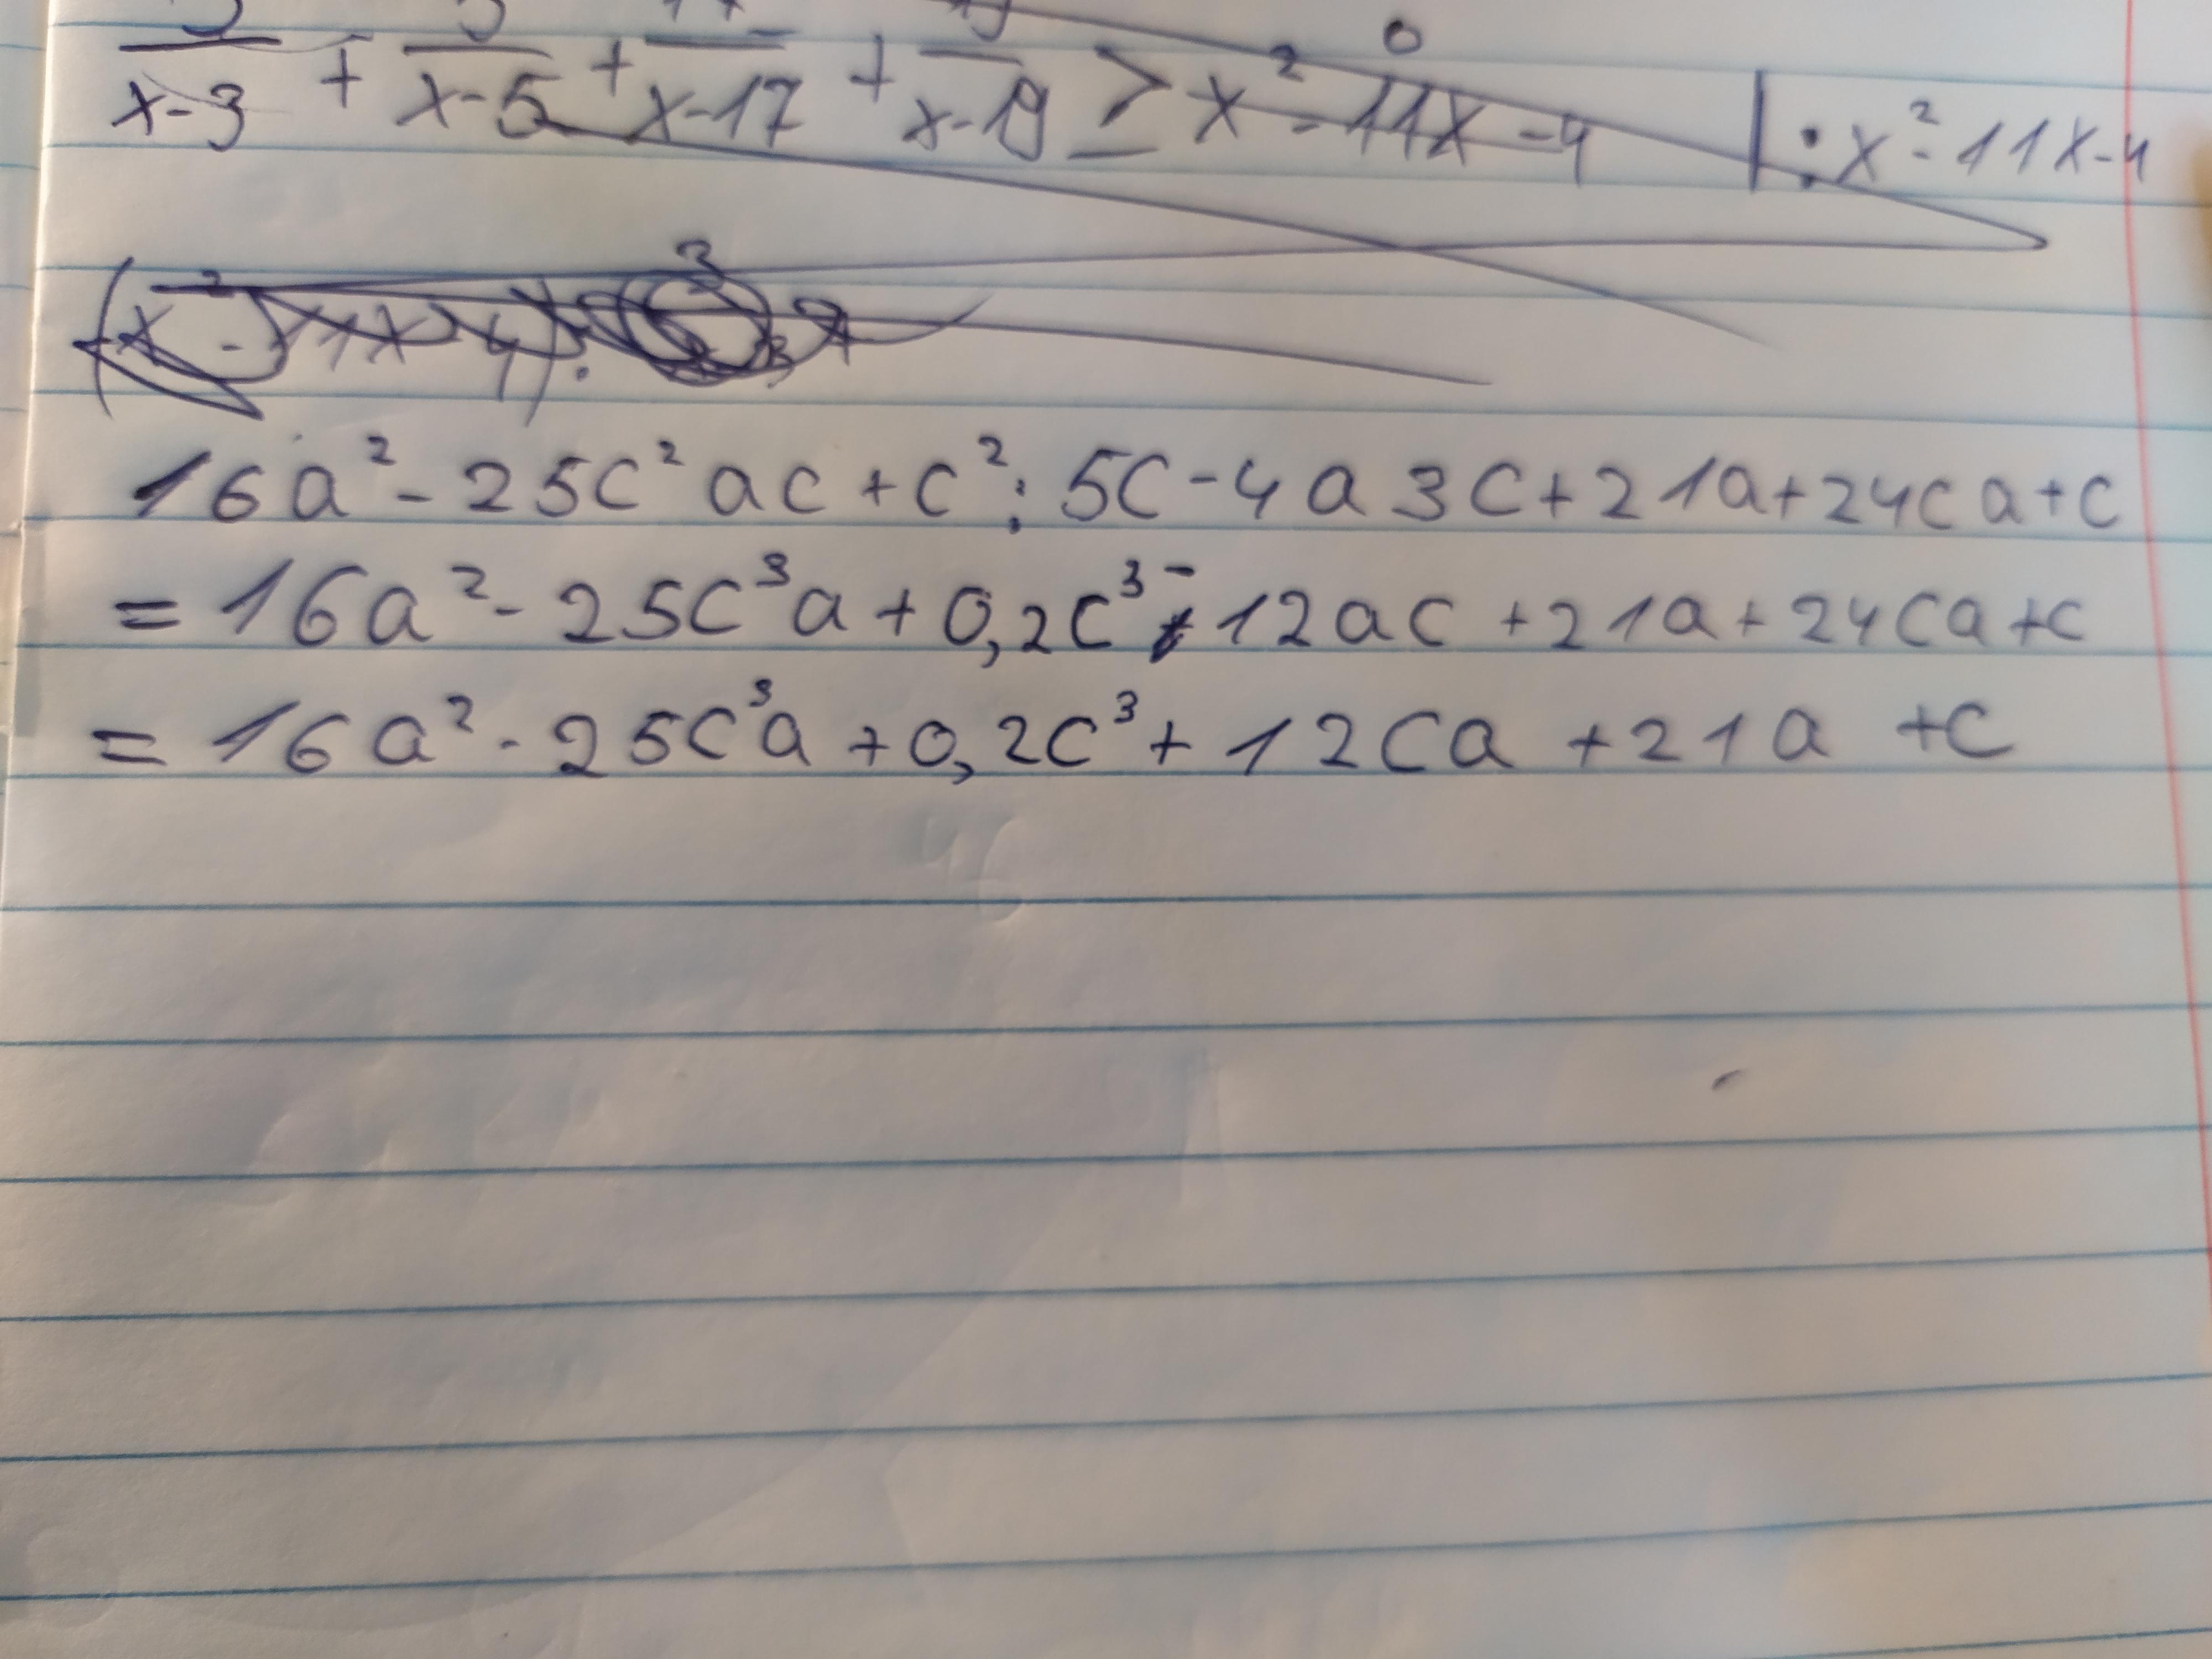 x-3 + x-5 + x-17 + x-19 ≥ x² - 11x - 4 0 | : x² - 11x - 4
(x² - 11x - 4) :
16a² - 25c² ac + c² : 5c - 4a 3c + 21a + 24ca + c
= 16a² - 25c³a + 0,2c³ - 12ac + 21a + 24ca + c
= 16a² - 25c³a + 0,2c³ + 12ca + 21a + c